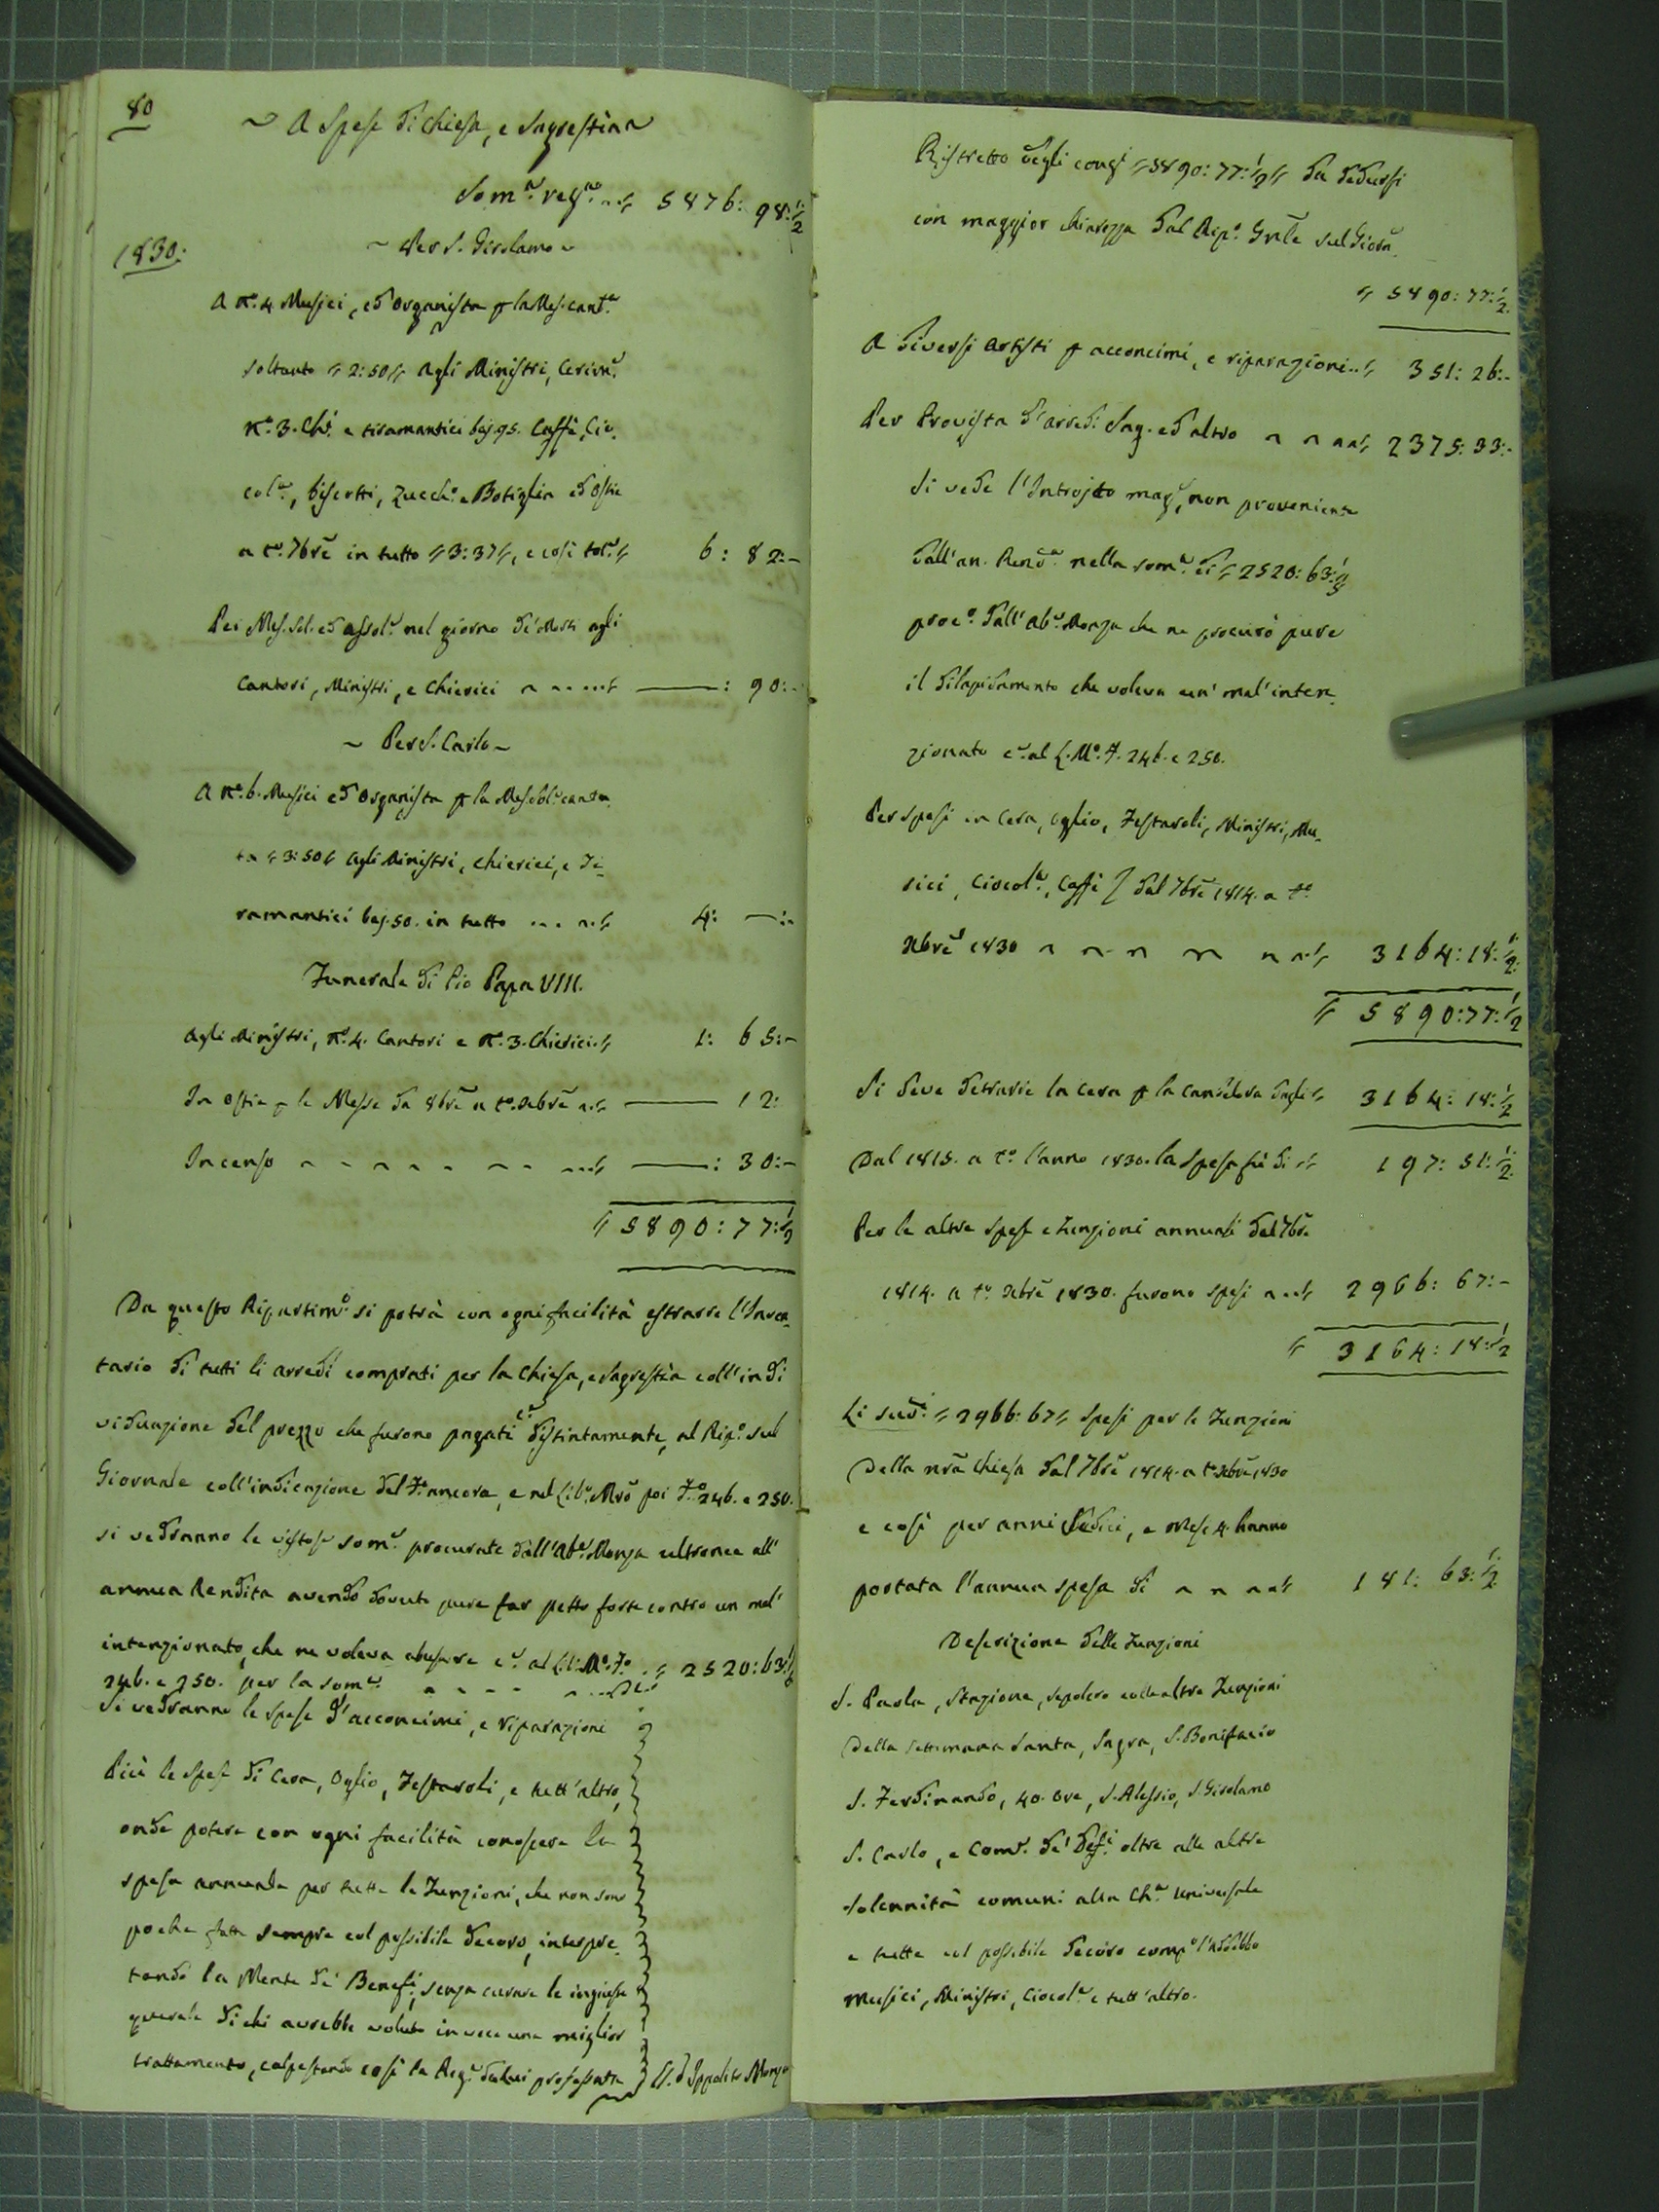 80
~ A Spese di Chiesa, e Sagrestia ~
Som.ª reg.ª .. 5876: 98:½
1830:
~ Per S. Girolamo ~
A N.º 4. Musici, ed Organista p la Mes. cant.ª
soltanto 2:50 Agli Ministri, Cerim.
N.º 3. Ch.ⁱ e tiramantici baj. 95. Caffè, Cio.
col.ª, biscotti, Zucch.º e Botiglia ed Ostie
a t.º 7bre in tutto 3:37, e così tol.ª 6: 82:-
Pei Mes. Sol. ed assol.ⁿ nel giorno de' Morti agli
Cantori, Ministri, e Chierici ——: 90:-
~ Per S. Carlo ~
A N.º 6. Musici ed Organista p la Mes. Sol. canta
ta 3:50 Agli Ministri, Chierici, e Ti-
ramantici baj. 50. in tutto 4: —:-
Funerale di Pio Papa VIII.
Agli Ministri, N.º 4. Cantori e N.º 3. Chierici 1: 65:-
In ostie p le Messe da 8bre a t.º Xbre —— 12:
Incenso ——: 30:-
5890:77:½
Da questo Ripartim.º si potrà con ogni facilità estrarre l'Inven-
tario di tutti li arredi comprati per la Chiesa, e Sagrestia coll'indi
viduazione del prezzo che furono pagati distintamente, al Rip.º sul
Giornale coll'indicazione del F.º ancora, e nel Lib.º Mrò poi F.º 246. e 250.
si vedranno le vistose som.ᵉ procurate dall'Ab.ᵉ Monza ultronee all'
annua Rendita avendo dovuto pure far petto forte contro un mal'
intenzionato, che ne voleva abusare c.ᵉ al Li: M.º F.º 2520:63:½
246. e 250. per la som.ª
Si vedranno le spese d'acconcimi, e riparazioni
Più le spese di Cera, Oglio, Festaroli, e tutt'altro,
onde potere con ogni facilità conoscere la
spesa annuale per tutte le Funzioni, che non sono
poche fatte sempre col possibile decoro, interpre-
tando la Mente de' Benef.ⁱ, senza curare le ingiuste
querele di chi avrebbe voluto invece un miglior
trattamento, calpestando così la Reg.ª da lui professata D. Ippolito Monza
Ristretto degli contgi 5890:77:½ da dedursi
con maggior chiarezza dal Rip.º Gnle sul Giorn.
5890:77:½
A diversi Artisti p acconcimi, e riparazioni .. 351: 26:-
Per Provista d'arredi Sag. ed altro 2375: 33:-
Si vede l'Introjto mag.ᵉ, non proveniente
dall'an. Rend.ª nella som.ª di 2520: 63:½
proc.º dall'Ab.ᵉ Monza che ne procurò pure
il dilapidamento che voleva un' mal'inten-
zionato c.ᵉ al L. M.º F. 246. e 250.
Per spesi in Cera, Oglio, Festaroli, Ministri, Mu-
sici, Ciocol.ª, Caffè dal 7bre 1814. a t.º
Xbre 1830 3164:18:½
5890:77:½
Si deve detrarre la cera p la Candelora dagli 3164: 18:½
Dal 1815. a t.º l'anno 1830. la Spesa fù di 197: 51:½
Per le altre Spese e Funzioni annuali dal 7bre
1814. a t.º Xbre 1830. furono spesi 2966: 67:-
3164: 18:½
Li sud.ⁱ 2966:67 Spesi per le Funzioni
Della nrā Chiesa dal 7bre 1814. a t.º Xbre 1830
e così per anni Sedici, e Mesi 4. hanno
portata l'annua spesa di 181: 63:½
Descrizione delle Funzioni
S. Paola, Stazione, Sepolcro colle altre Funzioni
Della Settimana Santa, Sagra, S. Bonifacio
S. Ferdinando, 40. Ore, S. Alessio, S. Girolamo
S. Carlo, e Com. de' Def.ⁱ oltre alle altre
Solennità comuni alla Ch.ª Universale
e tutte col possibile decoro comp.º l'addobbo
Musici, Ministri, Ciocol.ª e tutt'altro.